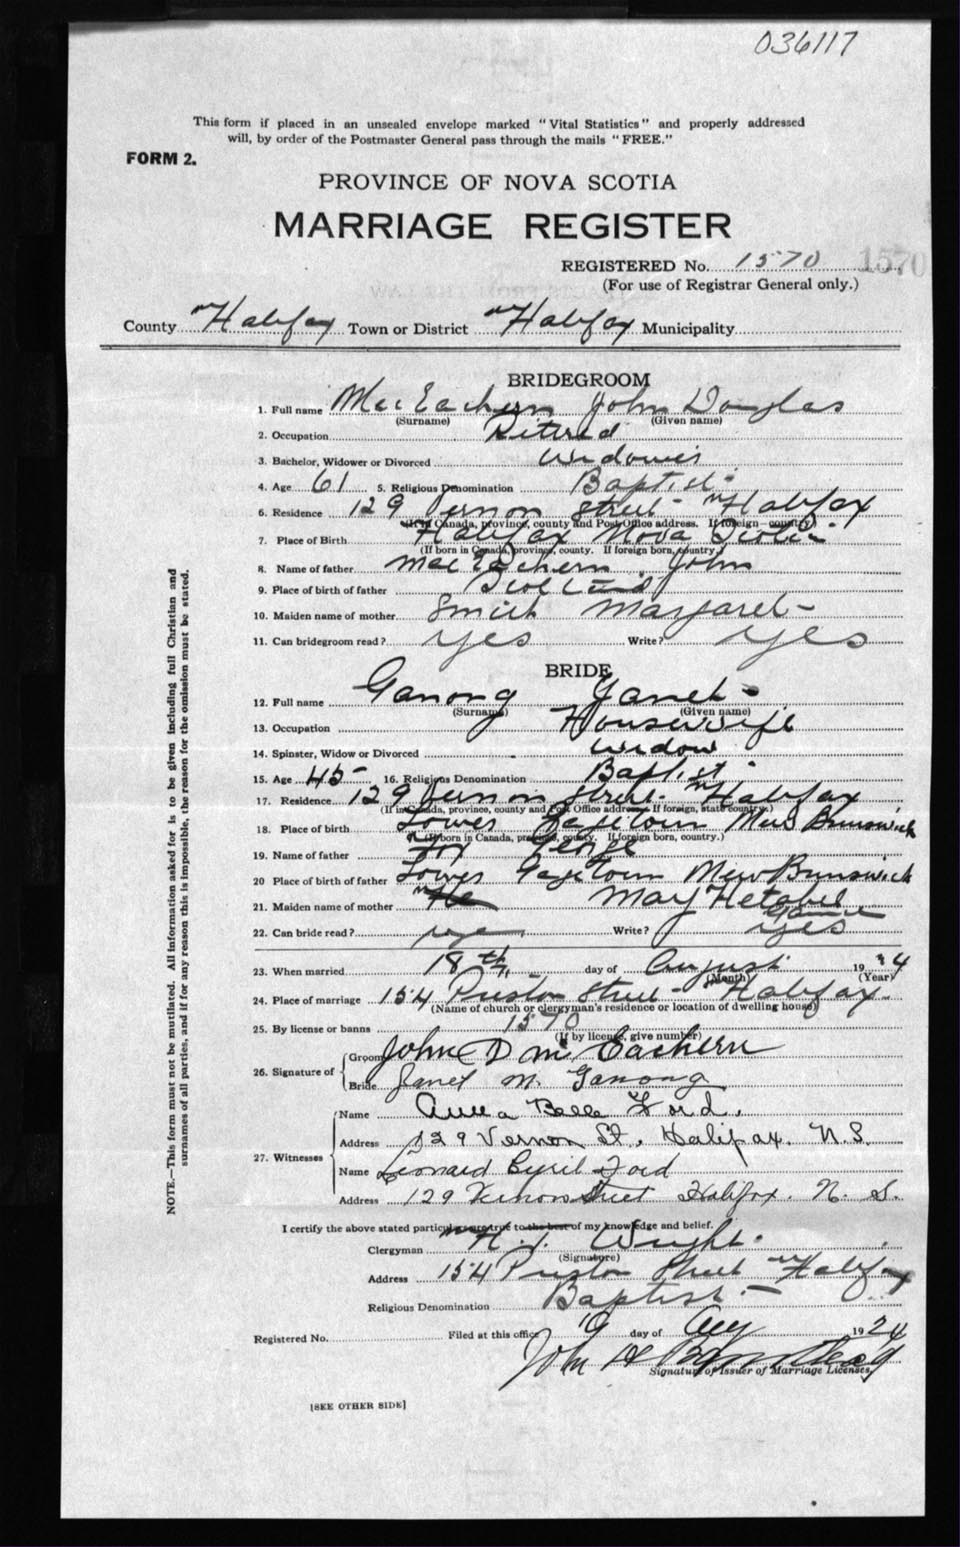 036117
This form if placed in an unsealed envelope marked "Vital Statistics" and properly addressed
will, by order of the Postmaster General pass through the mails "FREE."
FORM 2.
PROVINCE OF NOVA SCOTIA
MARRIAGE REGISTER
REGISTERED No. 1570 1570
(For use of Registrar General only.)
County Halifax Town or District Halifax Municipality
BRIDEGROOM
1. Full name MacEachern John Douglas
(Surname) (Given name)
2. Occupation Retired
3. Bachelor, Widower or Divorced Widower
4. Age 61 5. Religious Denomination Baptist
6. Residence 129 Vernon Street Halifax
(If in Canada, province, county and Post Office address. If foreign country)
7. Place of Birth Halifax Nova Scotia
(If born in Canada, province, county. If foreign born, country.)
8. Name of father MacEachern John
9. Place of birth of father Scotland
10. Maiden name of mother Smith Margaret
11. Can bridegroom read? yes Write? yes
BRIDE
12. Full name Ganong Janet
(Surname) (Given name)
13. Occupation Housewife
14. Spinster, Widow or Divorced Widow
15. Age 45 16. Religious Denomination Baptist
17. Residence 129 Vernon Street Halifax
(If in Canada, province, county and Post Office address. If foreign, state country.)
18. Place of birth Lower Gagetown New Brunswick
(If born in Canada, province, county. If foreign born, country.)
19. Name of father Fox George
20 Place of birth of father Lower Gagetown New Brunswick
21. Maiden name of mother May Hetabel
22. Can bride read? yes Write? yes
23. When married 18th day of August 19 4
(Month) (Year)
24. Place of marriage 154 Preston Street Halifax
(Name of church or clergyman's residence or location of dwelling house)
25. By license or banns 1570
(If by license, give number)
26. Signature of Groom John D McEachern
Bride Janet M. Ganong
27. Witnesses Name Anna Belle Ford.
Address 129 Vernon St., Halifax. N.S.
Name Leonard Cyril Ford
Address 129 Vernon Street Halifax. N. S.
I certify the above stated particulars are true to the best of my knowledge and belief.
Clergyman H. T. Wright
(Signature)
Address 154 Preston Street Halifax
Religious Denomination Baptist
Registered No. Filed at this office 19 day of Aug 1924
John
Signature of Issuer of Marriage Licenses
[SEE OTHER SIDE]
NOTE.—This form must not be mutilated. All information asked for is to be given including full Christian and
surnames of all parties, and if for any reason this is impossible, the reason for the omission must be stated.